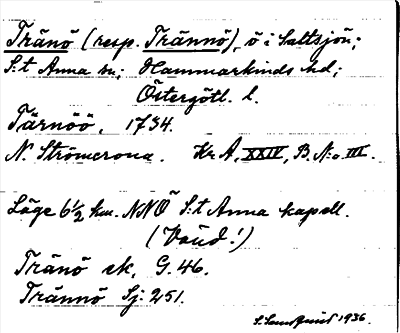 Tränö (resp. Trännö), ö i Saltsjön;
S:t Anna sn; Hammarkinds hd;
Östergötl. l.
Tärnöö, 1734.
N. Strömcrona. Kr A, XXIV, B. N:o III.
Läge 6½ km. NNÖ S:t Anna kapell.
(Vänd!)
Tränö ek, G. 46.
Trännö Sj: 251.
1936.